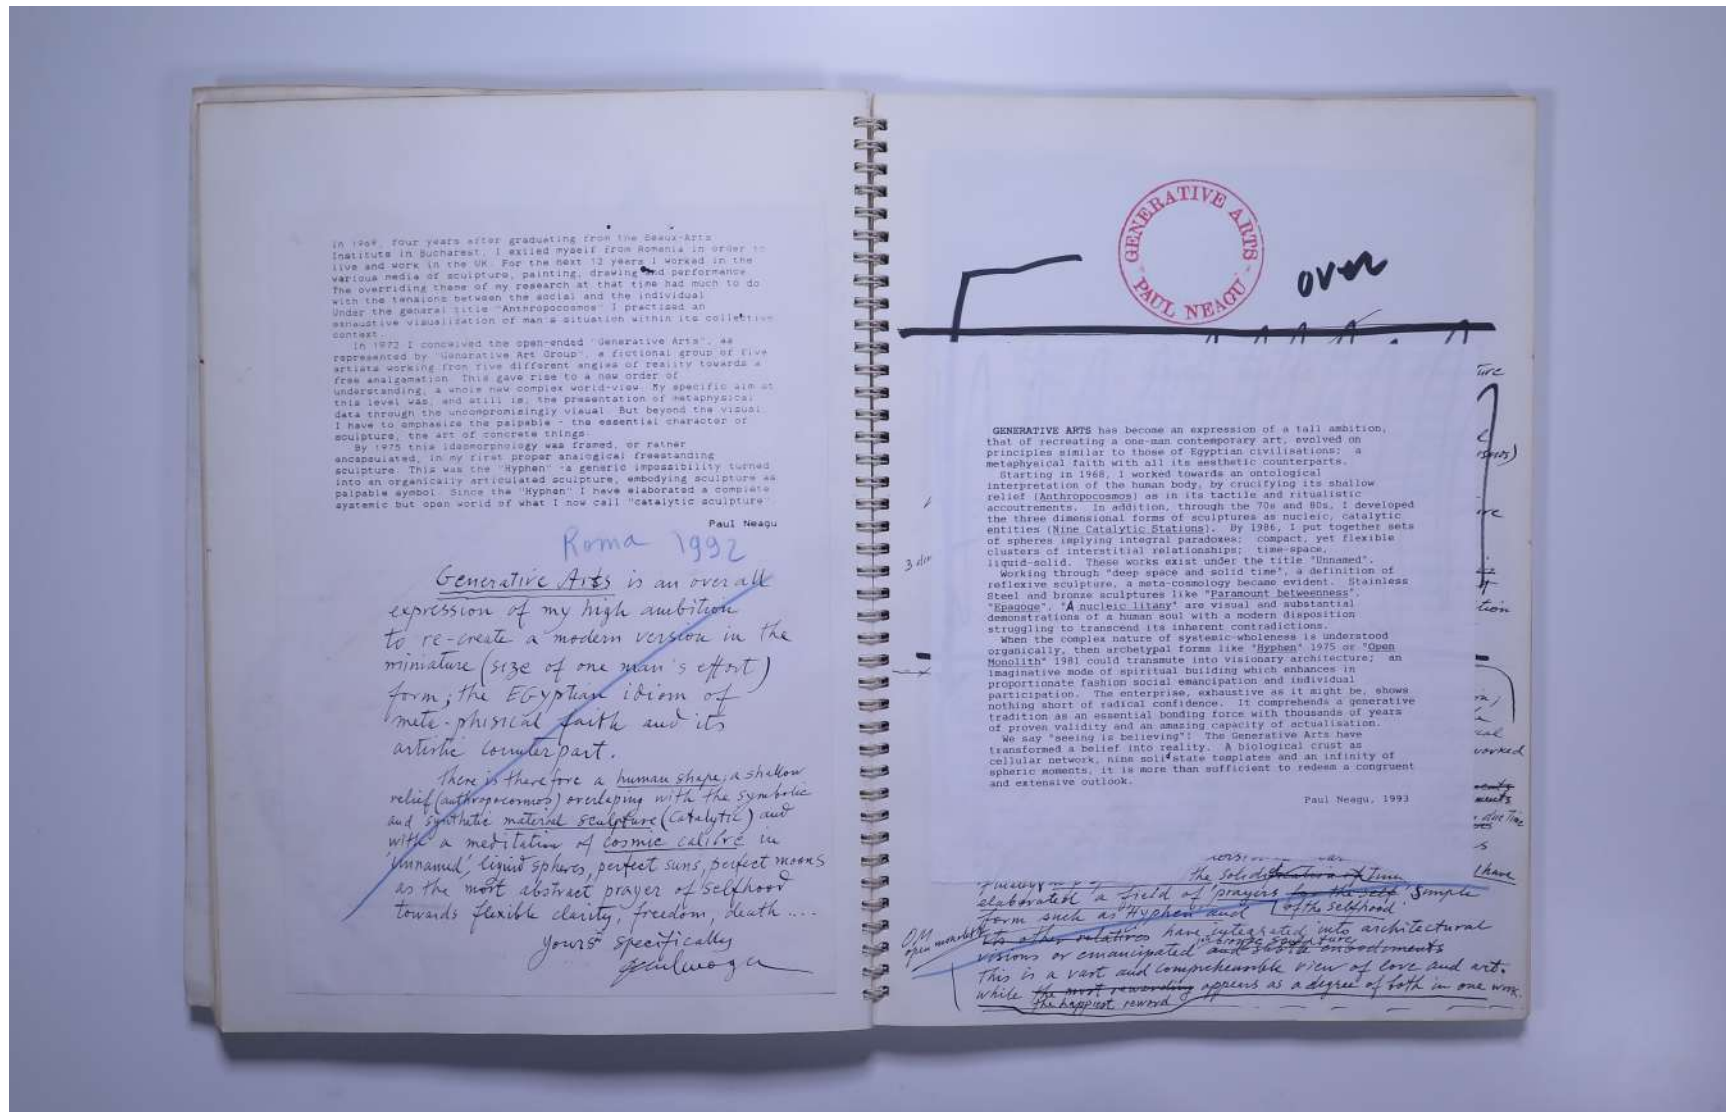 In 1969, four years after graduating from the Beaux-Arts
Institute in Bucharest, I exiled myself from Romania in order to
live and work in the UK. For the next 12 years I worked in the
various media of sculpture, painting, drawing and performance
The overriding theme of my research at that time had much to do
with the tensions between the social and the individual
Under the general title "Anthropocosmos" I practised an
exhaustive visualization of man's situation within its collective
context.
In 1972 I conceived the open-ended "Generative Arts", as
represented by "Generative Art Group", a fictional group of five
artists working from five different angles of reality towards a
free amalgamation. This gave rise to a new order of
understanding, a whole new complex world-view. My specific aim at
this level was, and still is, the presentation of metaphysical
data through the uncompromisingly visual. But beyond the visual,
I have to emphasize the palpable - the essential character of
sculpture, the art of concrete things.
By 1975 this ideomorphology was framed, or rather
encapsulated, in my first proper analogical freestanding
sculpture. This was the "Hyphen" -a generic impossibility turned
into an organically articulated sculpture, embodying sculpture as
palpable symbol. Since the "Hyphen" I have elaborated a complete
systemic but open world of what I now call "catalytic sculpture"
Paul Neagu
Roma 1992
Generative Arts is an over all
expression of my high ambition
to re-create a modern version in the
miniature (size of one man's effort)
form; the EGyptian idiom of
meta-phisical faith and its
artistic counterpart.
There is therefore a human shape, a shallow
relief (anthropocosmos) overlaping with the symbolic
and synthetic material sculpture (catalytic) and
with a meditation of cosmic calibre in
'Unnamed', liquid spheres, perfect suns, perfect moons
as the most abstract prayer of selfhood
towards flexible clarity, freedom, death ....
yours specifically
GENERATIVE ARTS
PAUL NEAGU
over
GENERATIVE ARTS has become an expression of a tall ambition,
that of recreating a one-man contemporary art, evolved on
principles similar to those of Egyptian civilisations; a
metaphysical faith with all its aesthetic counterparts.
Starting in 1968, I worked towards an ontological
interpretation of the human body, by crucifying its shallow
relief (Anthropocosmos) as in its tactile and ritualistic
accoutrements. In addition, through the 70s and 80s, I developed
the three dimensional forms of sculptures as nucleic, catalytic
entities (Nine Catalytic Stations). By 1986, I put together sets
of spheres implying integral paradoxes: compact, yet flexible
clusters of interstitial relationships; time-space,
liquid-solid. These works exist under the title "Unnamed".
Working through "deep space and solid time", a definition of
reflexive sculpture, a meta-cosmology became evident. Stainless
Steel and bronze sculptures like "Paramount betweenness",
"Epagoge", "A nucleic litany" are visual and substantial
demonstrations of a human soul with a modern disposition
struggling to transcend its inherent contradictions.
When the complex nature of systemic-wholeness is understood
organically, then archetypal forms like "Hyphen" 1975 or "Open
Monolith" 1981 could transmute into visionary architecture; an
imaginative mode of spiritual building which enhances in
proportionate fashion social emancipation and individual
participation. The enterprise, exhaustive as it might be, shows
nothing short of radical confidence. It comprehends a generative
tradition as an essential bonding force with thousands of years
of proven validity and an amazing capacity of actualisation.
We say "seeing is believing"! The Generative Arts have
transformed a belief into reality. A biological crust as
cellular network, nine solid state templates and an infinity of
spheric moments, it is more than sufficient to redeem a congruent
and extensive outlook.
Paul Neagu, 1993
worked
due time
have
elaborated a field of 'prayers for the self' Simple
form such as 'Hyphen' and of the selfhood
its other relatives have integrated into architectural
open monolith
visions or emancipated and subtle embodiments
This is a vast and comprehensible view of love and art.
while the most rewarding appears as a degree of both in one work.
the happiest reword